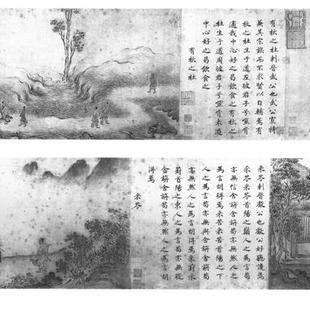 有杕之杜刺晉武公也武公寡特
兼其宗族而不求賢以自輔焉有
杕之杜生于道左彼君子兮噬肯
適我中心好之曷飲食之有杕之
杜生于道周彼君子兮噬肯來遊
中心好之曷飲食之
有杕之杜
采苓刺晉獻公也獻公好聽讒焉
采苓采苓首陽之巔人之為言苟
亦無信舍旃舍旃苟亦無然人之
為言胡得焉采苦采苦首陽之下
人之為言苟亦無與舍旃舍旃苟
亦無然人之為言胡得焉采葑采
葑首陽之東人之為言苟亦無從
舍旃舍旃苟亦無然人之為言胡
得焉
采苓